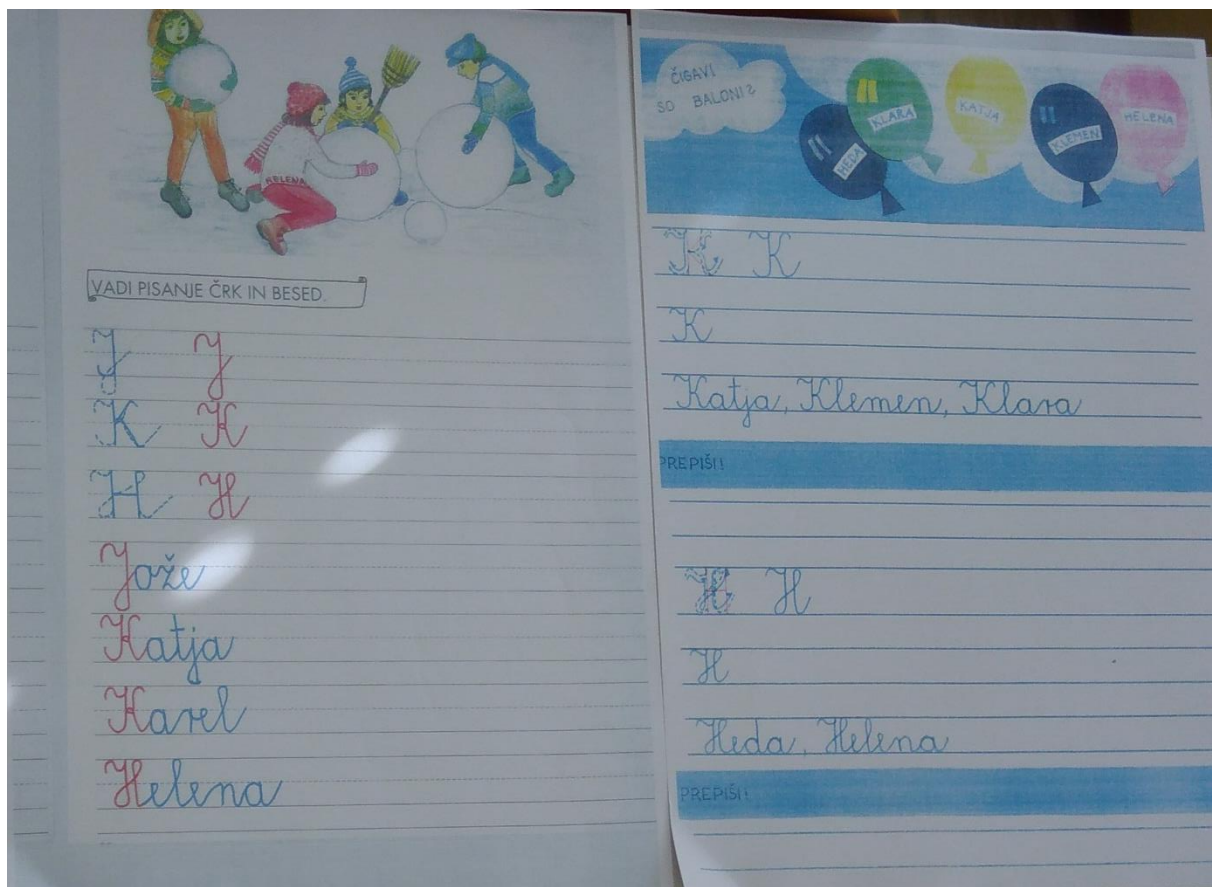 HELENA
VADI PISANJE ČRK IN BESED.
J J
K K
H H
Jože
Katja
Karel
Helena
ČIGAVI
SO BALONI?
HEDA
KLARA
KATJA
KLEMEN
HELENA
K K
K
Katja, Klemen, Klara
PREPIŠI!
H H
H
Heda, Helena
PREPIŠI!